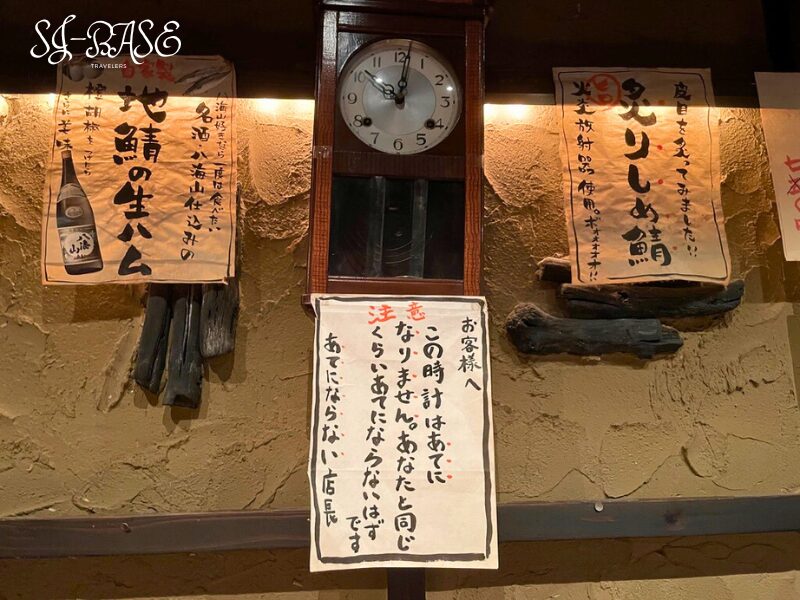 SG-BASE
TRAVELERS
八海山好きなら一度は食べたい
名酒・八海山仕込みの
自家製
地鯖の生ハム
柚胡椒をつけたら
さらに美味
八海山
注意
お客様へ
この時計はあてに
なりません。あなたと同じ
くらいあてにならないはず
です
あてにならない店長
皮目を炙ってみました!!
炙りしめ鯖
火炎放射器使用。